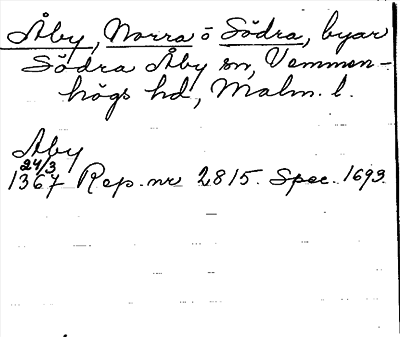 Åby, Norra o Södra, byar
Södra Åby sn, Vemmen-
högs hd, Malm. l.
Åby
24/3
1367 Rep. nr 2815. Spec. 1693.